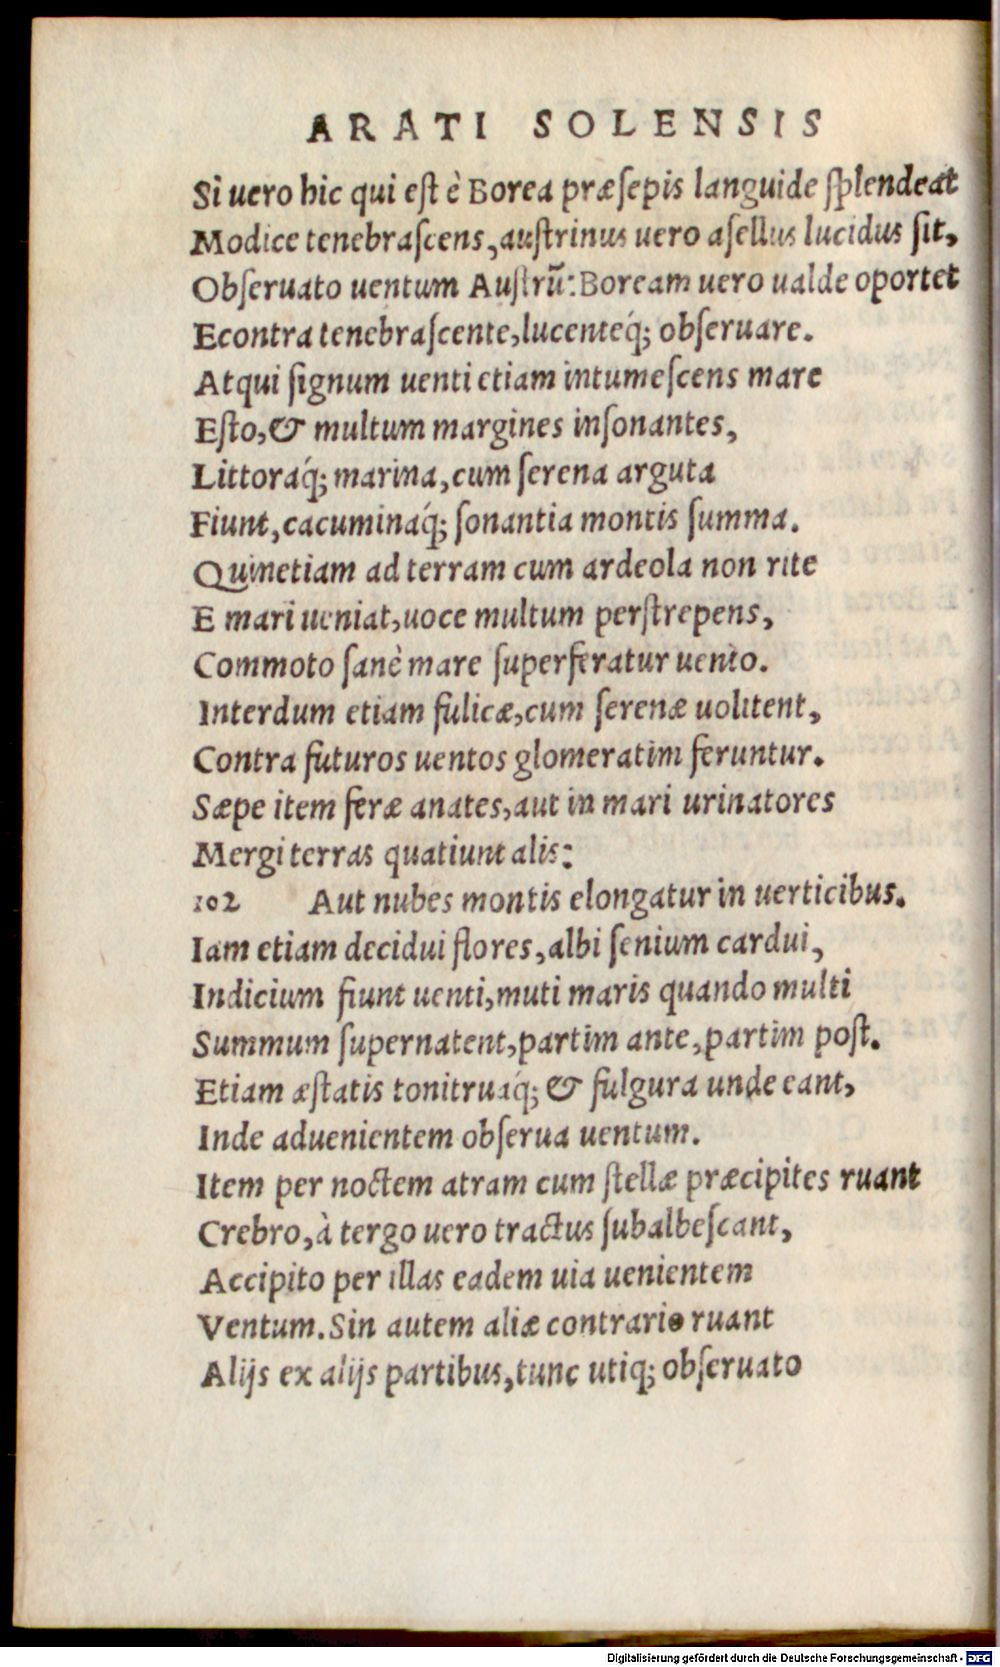 ARATI SOLENSIS
Si uero hic qui eſt è Borea præſepis languide ſplendeat
Modice tenebraſcens, auſtrinus uero aſellus lucidus ſit,
Obſeruato uentum Auſtrū: Boream uero ualde oportet
Econtra tenebraſcente, lucenteq́; obſeruare.
Atqui ſignum uenti etiam intumeſcens mare
Eſto, & multum margines inſonantes,
Littoraq́; marina, cum ſerena arguta
Fiunt, cacuminaq́; ſonantia montis ſumma.
Quinetiam ad terram cum ardeola non rite
E mari ueniat, uoce multum perſtrepens,
Commoto ſanè mare ſuperferatur uento.
Interdum etiam fulicæ, cum ſerenæ uolitent,
Contra futuros uentos glomeratim feruntur.
Sæpe item feræ anates, aut in mari urinatores
Mergi terras quatiunt alis:
102 Aut nubes montis elongatur in uerticibus.
Iam etiam decidui flores, albi ſenium cardui,
Indicium fiunt uenti, muti maris quando multi
Summum ſupernatent, partim ante, partim poſt.
Etiam æſtatis tonitruaq́; & fulgura unde eant,
Inde aduenientem obſerua uentum.
Item per noctem atram cum ſtellæ præcipites ruant
Crebro, à tergo uero tractus ſubalbeſcant,
Accipito per illas eadem uia uenientem
Ventum. Sin autem aliæ contrario ruant
Alijs ex alijs partibus, tunc utiq; obſeruato
Digitalisierung gefördert durch die Deutsche Forschungsgemeinschaft - DFG